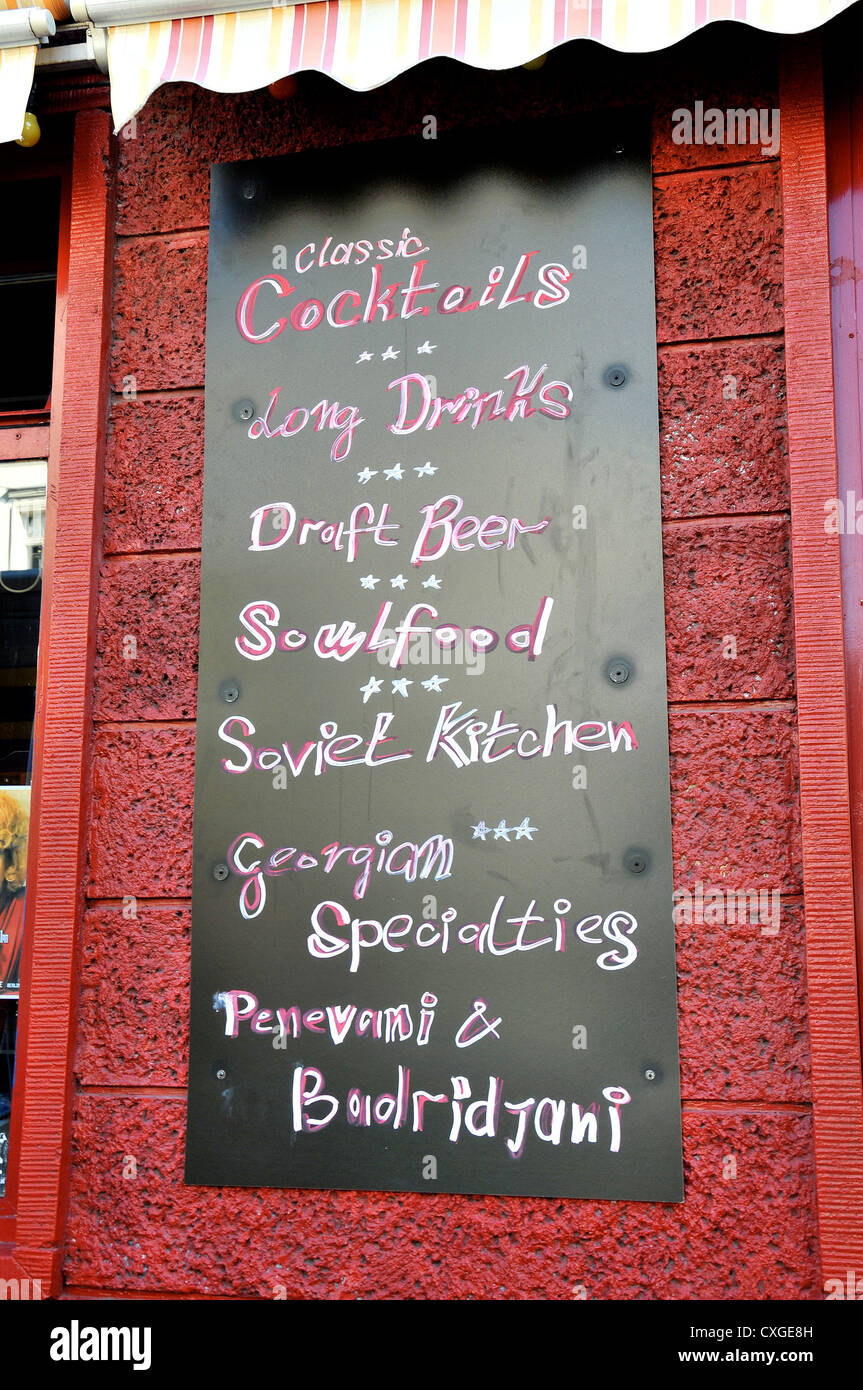 Classic
Cocktails
Long Drinks
Draft Beer
Soulfood
Soviet Kitchen
Georgian
Specialties
Penevani &
Badridjani
alamy
Image ID: CXGE8H
www.alamy.com